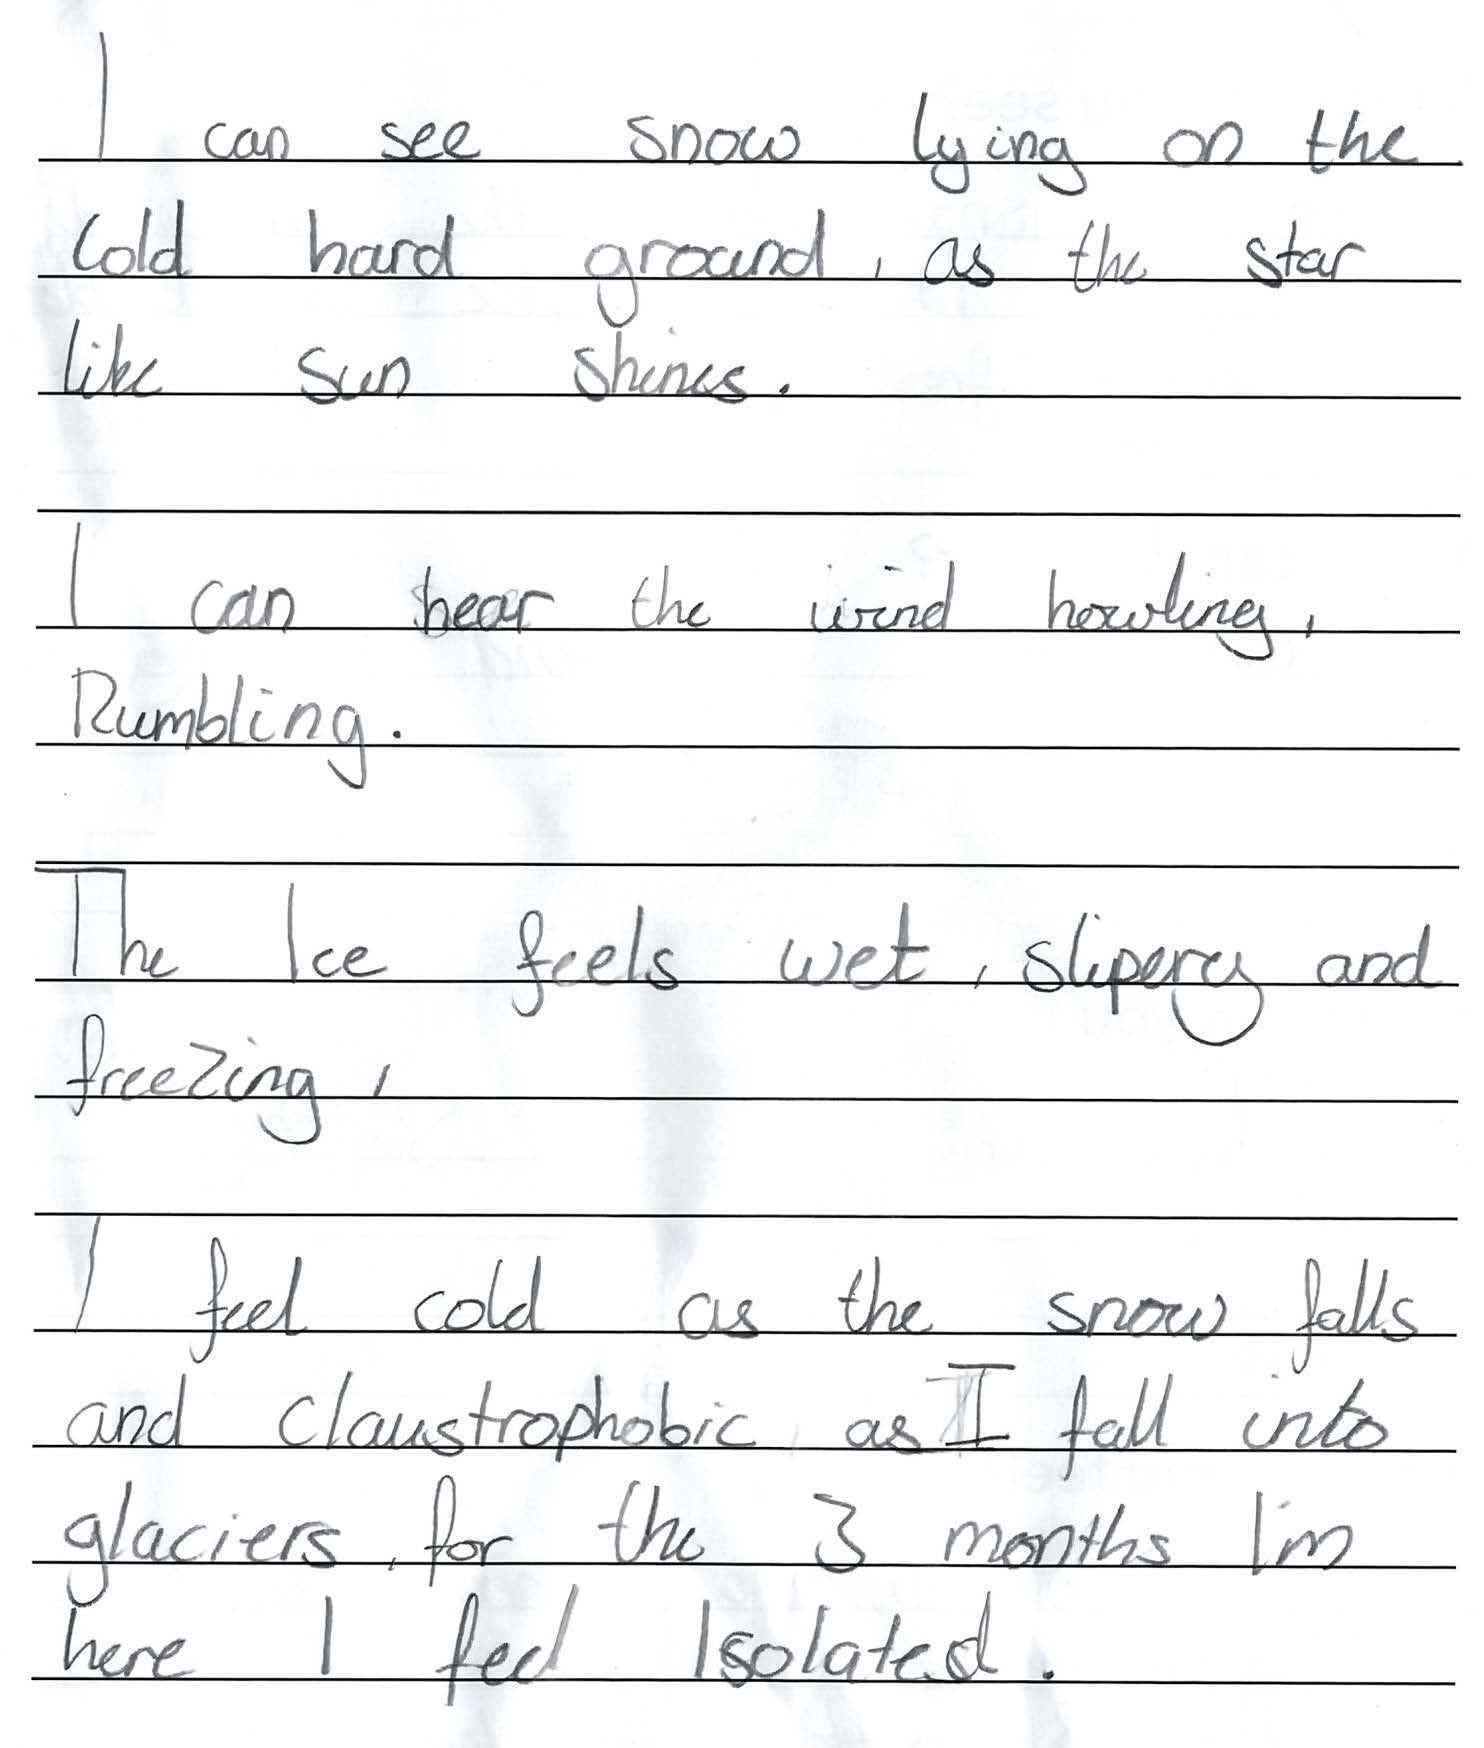 I can see snow lying on the
Cold hard ground, as the star
like sun shines.
I can hear the wind howling,
Rumbling.
The Ice feels wet, slipery and
freezing,
I feel cold as the snow falls
and claustrophobic, as I fall into
glaciers, for the 3 months I'm
here I feel Isolated.